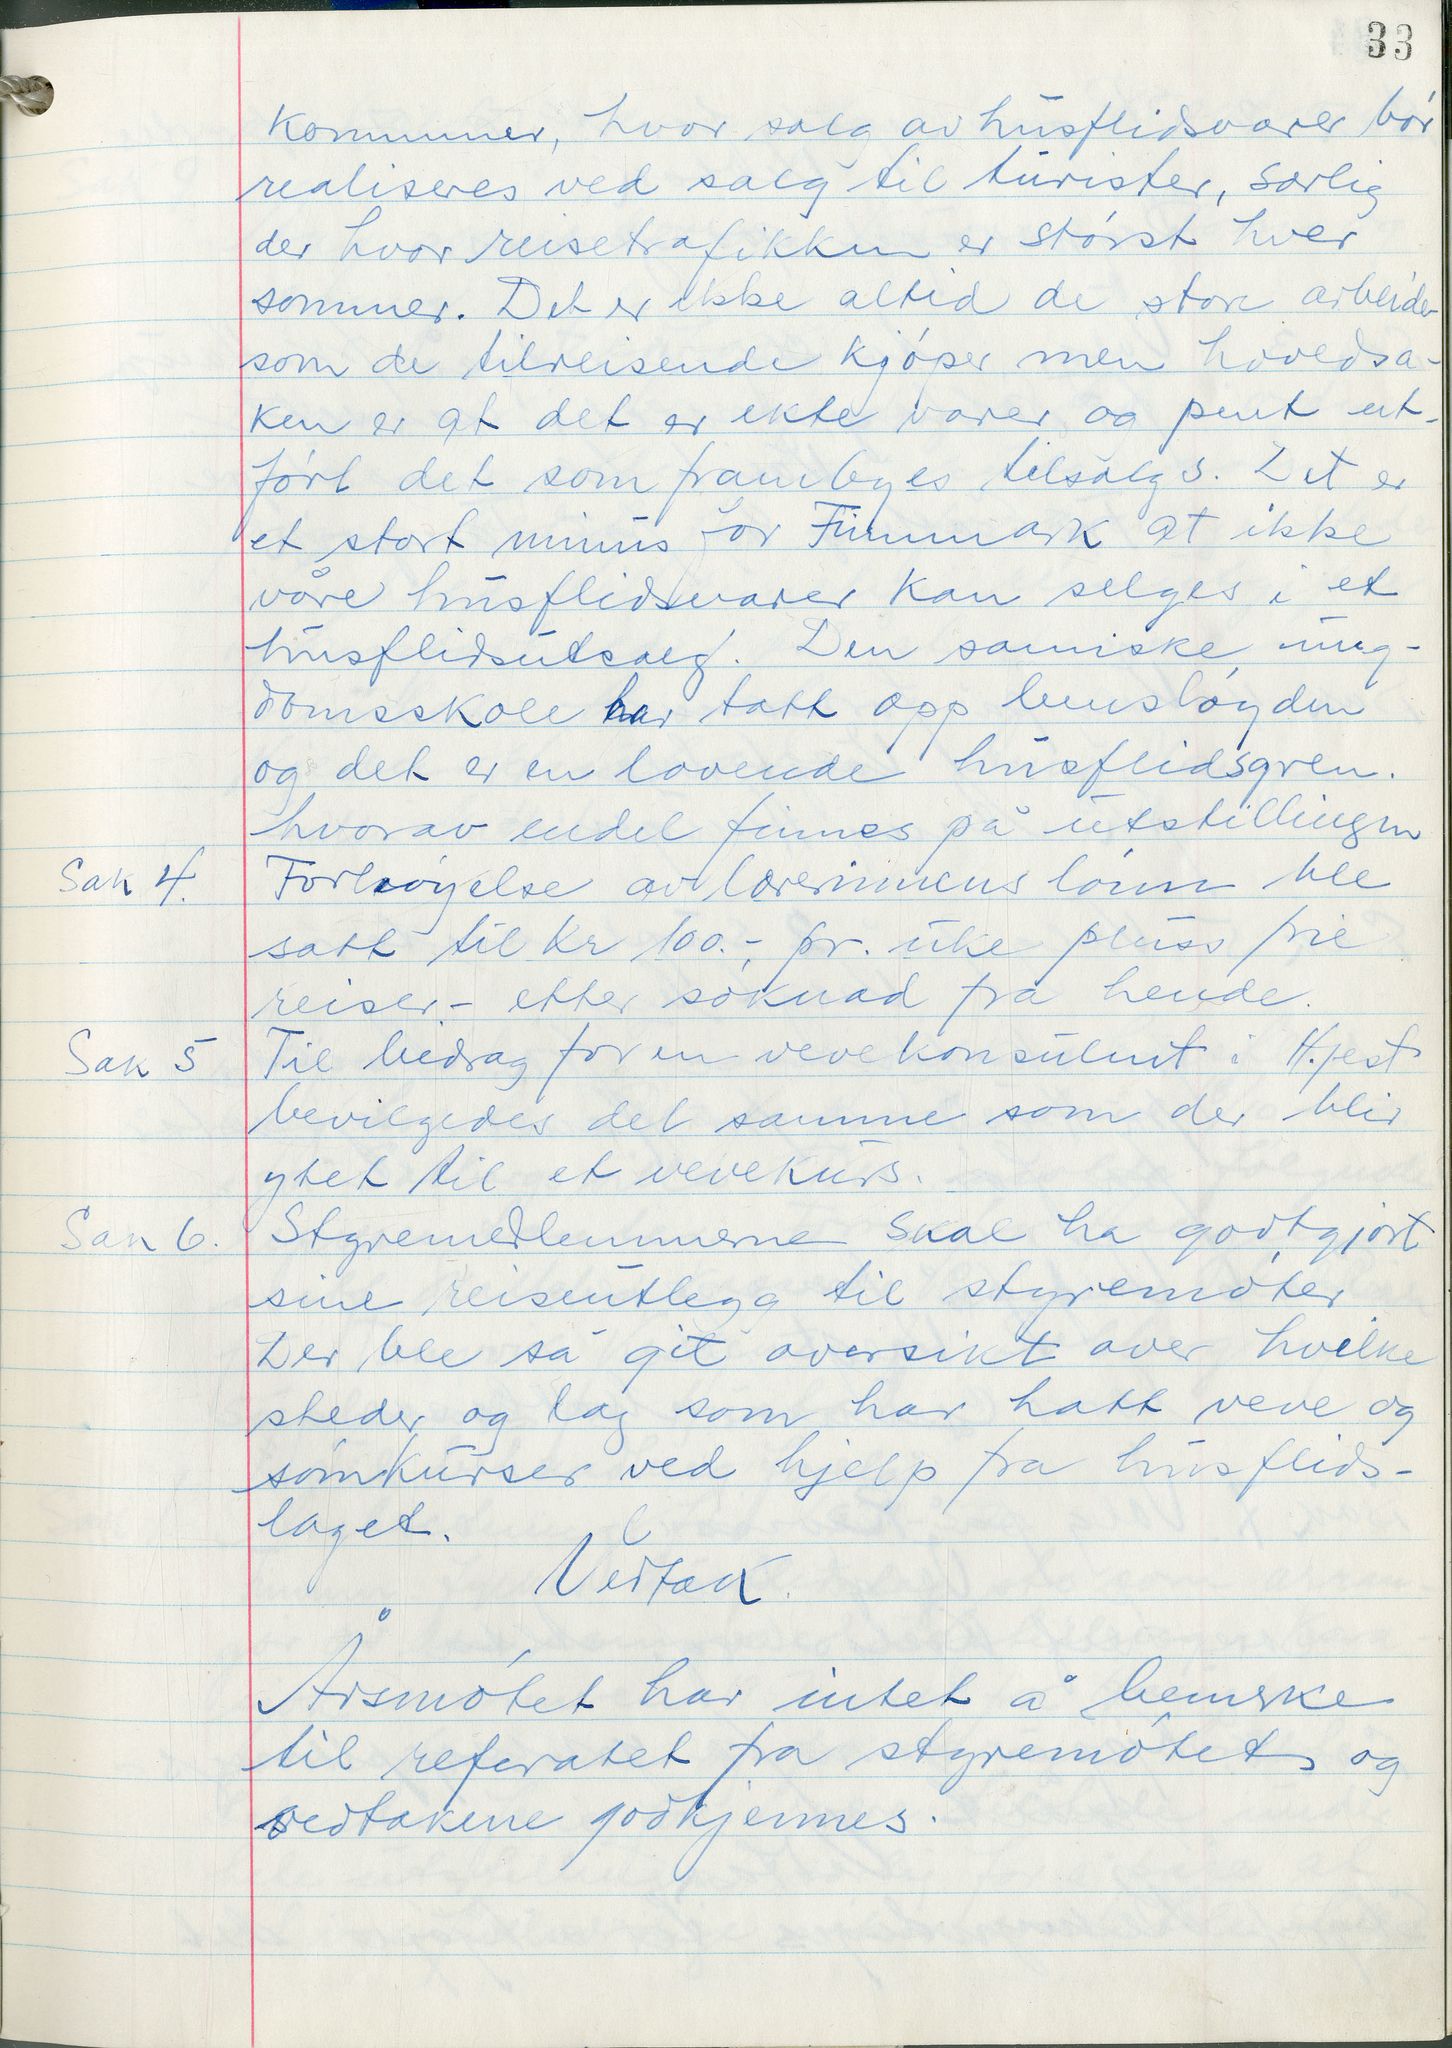 33
kommuner, hvor salg av husflidsvarer bør
realiseres ved salg til turister, særlig
der hvor reisetrafikken er størst hver
sommer. Det er ikke altid de store arbeider
som de tilreisende kjøper men hovedsa-
ken er at det er ekte varer og pent ut-
ført det som frambyes tilsalgs. Det er
et stort minus for Finnmark at ikke
våre husflidsvarer kan selges i et
husflidsutsalg. Den samiske ung-
domsskole har tatt opp bensløyden
og det er en lovende husflidsgren.
hvorav endel finnes på utstillingen
Sak 4. Forhøyelse av lærerinnens lønn ble
satt til kr 100.-, pr. uke pluss frie
reiser,- etter søknad fra hende.
Sak 5 Til bidrag for en vevekonsulent i H.fest
bevilgedes det samme som der blir
ytet til et vevekurs.
Sak 6. Styremedlemmerne skal ha godtgjort
sine reiseutlegg til styremøter
Der ble så git oversikt over hvilke
steder og lag som har hatt veve og
sømkurser ved hjelp fra husflids-
laget.
Vedtak.
Årsmøtet har intet å bemerke
til referatet fra styremøtet, og
vedtakene godkjennes.